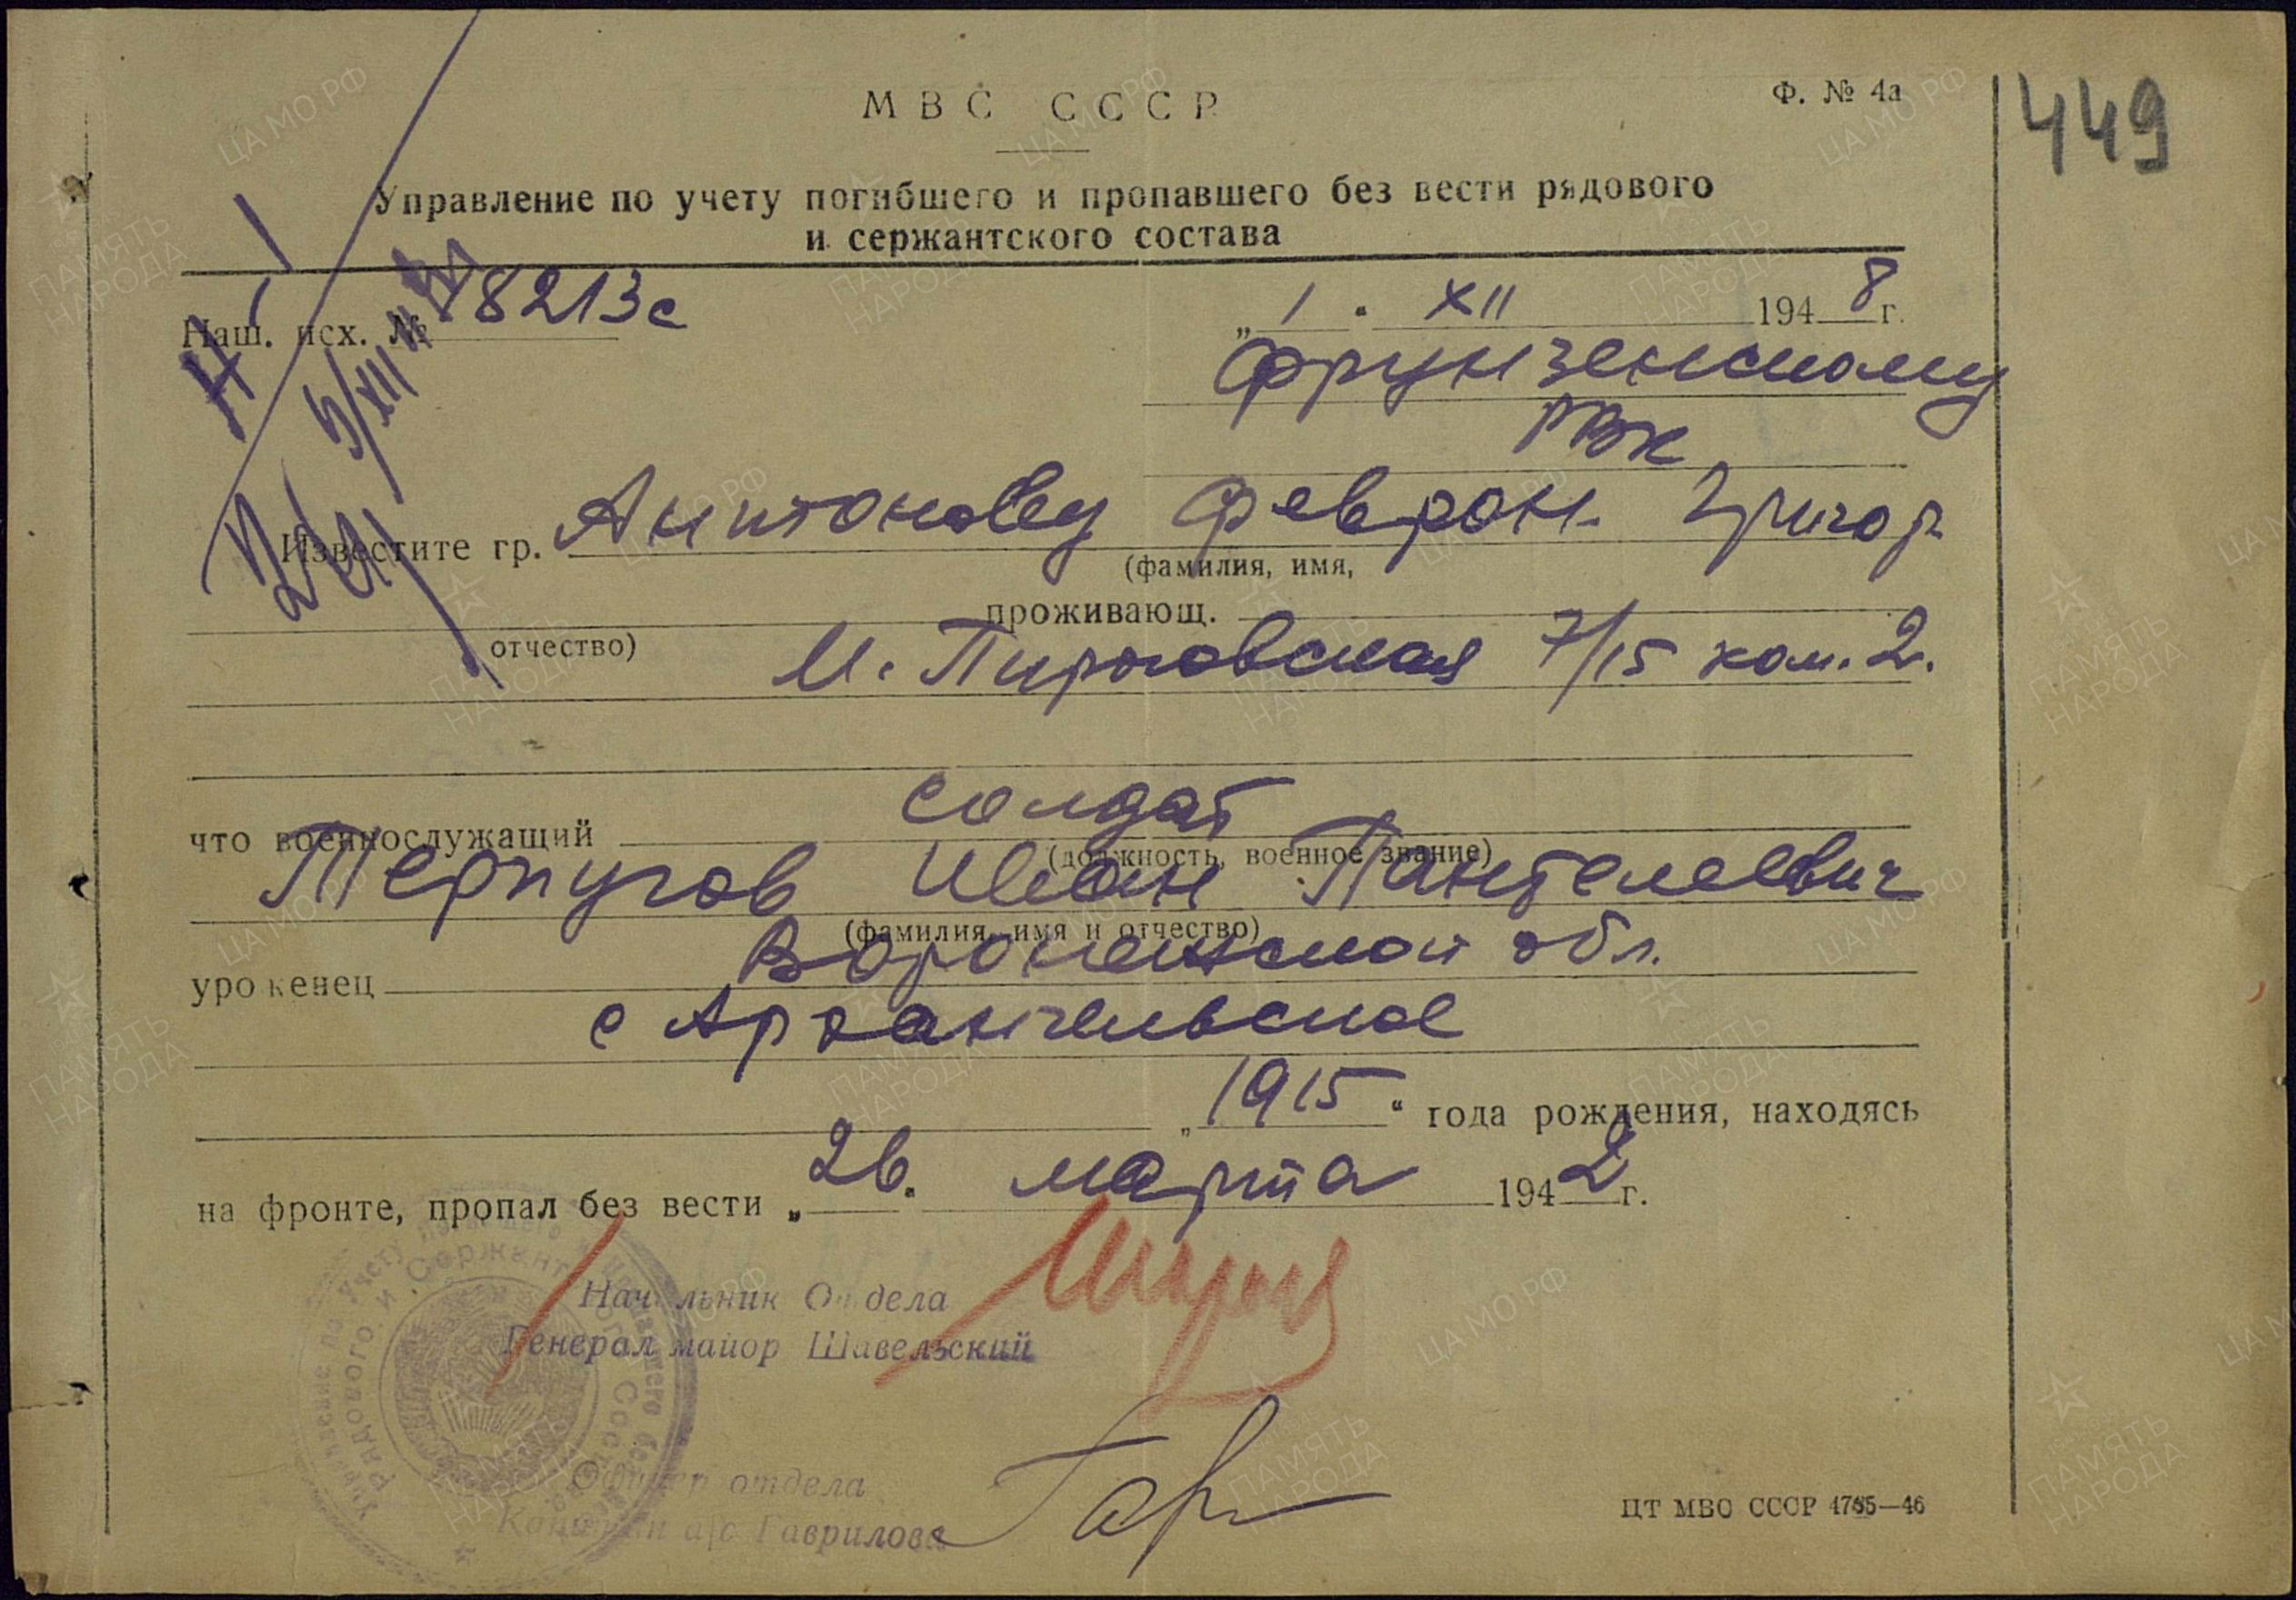 МВС СССР
Ф. № 4а
449
Управление по учету погибшего и пропавшего без вести рядового
и сержантского состава
Наш. исх. № 18213с
„1“ XII 1948 г.
Фрунзенскому
РВК
5/XII
Известите гр. Антонову Феврон. Григор.
(фамилия, имя,
проживающ.
отчество)
М. Пироговская 7/15 ком. 2.
солдат
что военнослужащий
(должность, военное звание)
Терпугов Иван Пантелеевич
(фамилия, имя и отчество)
Воронежской обл.
уроженец
с Архангельское
„1915“ года рождения, находясь
на фронте, пропал без вести „26“ марта 1942 г.
Начальник Отдела
Генерал майор Шавельский
Офицер отдела
Капитан а/с Гаврилова
ЦТ МВС СССР 4765—46
ЦА МО РФ
ПАМЯТЬ НАРОДА